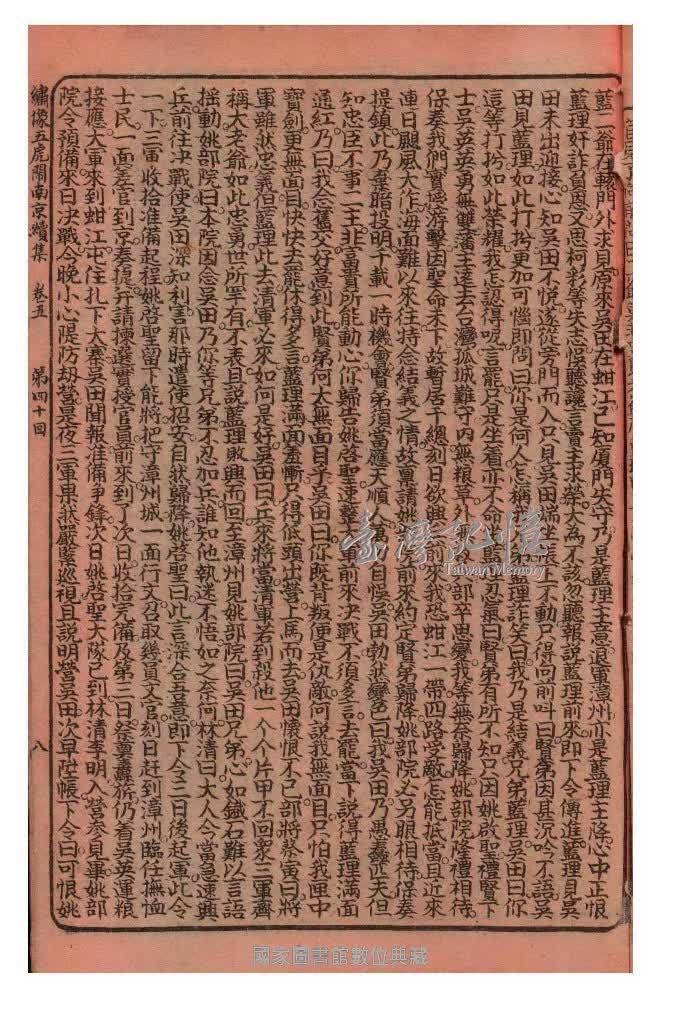 藍二爺在轅門外求見原來吳田在蚶江已知廈門失守乃是藍理主意退軍漳州亦是藍理主降心中正恨
藍理奸詐負恩又思柯彩等失志悞聽讒言賣主求榮大為不該忽聽報說藍理前來即下令傳進藍理見吳
田未出迎接心知吳田不悅遂從旁門而入只見吳田端坐帳上不動只得向前叫曰賢弟因甚沉吟不語吳
田見藍理如此打扮更加可惱即問曰你是何人怎稱 理詐笑曰我乃是結義兄弟藍理吳田曰你
這等打扮如此榮耀我怎認得呢言罷只是坐着亦不命坐藍 忍氣曰賢弟有所不知只因姚啟聖禮賢下
士吳英英勇無雙藩主遠去台灣孤城難守內無粮草外 部卒思變我等無奈歸降姚部院隆禮相待
保奏我們實授游擊因聖命未下故暫居千總刻日欲興 前來我恐蚶江一帶四路受敵怎能抵當且近來
連日颶風大作海面難以來往特念結義之情故稟請姚 前來約定賢弟歸降姚部院必另眼相待保奏
提鎮此乃棄暗投明千載一時機會賢弟須當應天順人萬 自悞吳田勃然變色曰我吳田乃愚蠢匹夫但
知忠臣不事二主非言語所能動心你歸告姚啓聖速整 前來決戰不須多言去罷當下說得藍理滿面
通紅乃曰我念舊交好意到此賢弟何太無面目乎吳田曰你既背叛便是仇敵何說我無面目只怕我匣中
寶劍更無面目快快去罷休得多言藍理滿面羞慚只得低頭出營上馬而去吳田懷恨不已部將蔡寅曰將
軍雖然忠義但藍理此去清軍必來如何是好吳田曰兵來將當清軍若到殺他一个个片甲不回眾三軍齊
稱大老爺如此忠勇世所罕有不表且說藍理敗興而回至漳州見姚部院曰吳田兄弟心如鐵石難以言語
搖動姚部院曰本院因念吳田乃你等兄弟不忍加兵誰知他執迷不悟如之奈何林清曰大人今當急速興
兵前往決戰使吳田深知利害那時遣使招安自然歸降姚啓聖曰此言深合吾意即下令三日後起軍此令
一下三軍收拾准備起程姚啓聖留下能將把守漳州城一面行文召取幾員文官刻日赶到漳州臨任撫恤
士民一面差官到京奏捷并請揀選實授官員前來到了次日收拾完備及第三日祭奠纛旂仍着吳英運粮
接應大軍來到蚶江屯住扎下大寨吳田聞報准備爭鋒次日姚啓聖大隊已到林清李明入營參見畢姚部
院令預備來日決戰今晚小心隄防刼營是夜三軍果然嚴緊巡視且說明營吳田次早陞帳下令曰可恨姚
繡像五虎鬧南京續集 卷五 第四十回 八
臺灣記憶
Taiwan Memory
國家圖書館數位典藏